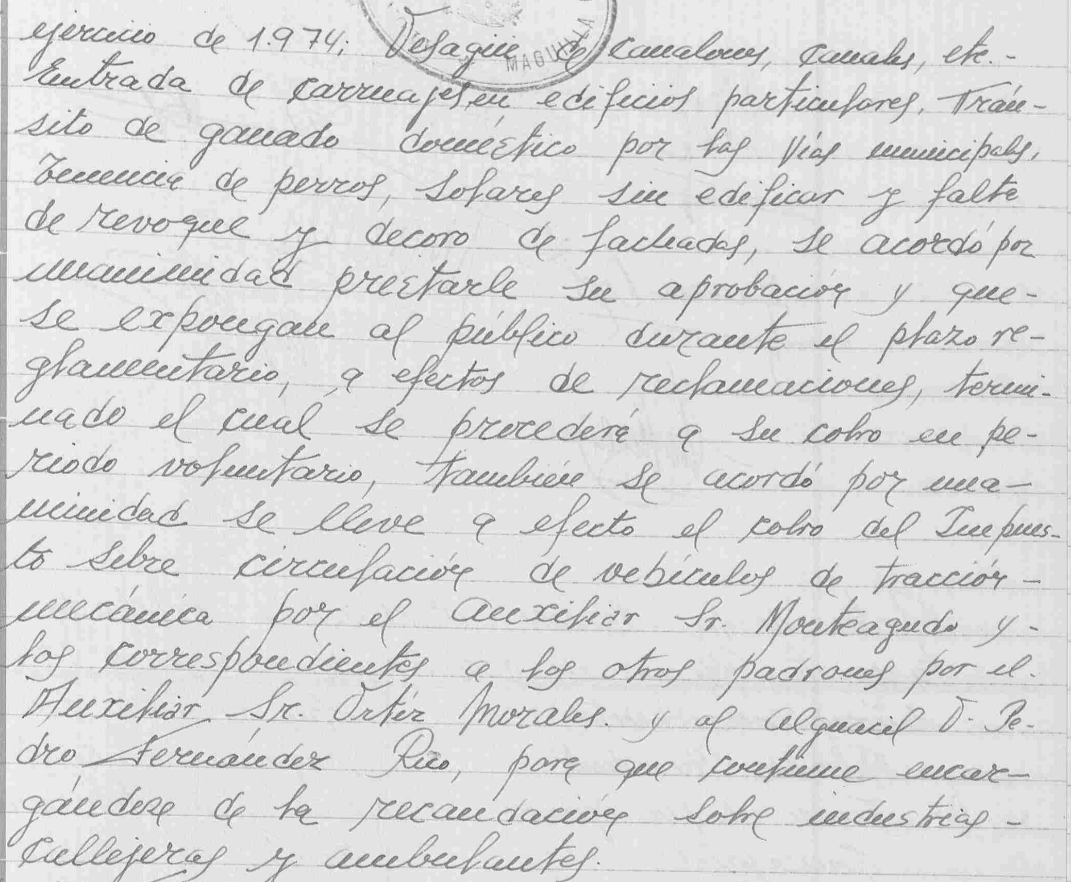 ejercicio de 1.974; Desagüe de canalones, canales, etc.-
Entrada de carruajes en edificios particulares. Trán-
sito de ganado doméstico por las vías municipales,
Tenencia de perros, solares sin edificar y falta
de revoque y decoro de fachadas, se acordó por
unanimidad prestarle su aprobación y que-
se expongan al público durante el plazo re-
glamentario, a efectos de reclamaciones, termi-
nado el cual se procederá a su cobro en pe-
riodo voluntario, también se acordó por una-
nimidad se lleve a efecto el cobro del Impues-
to sobre circulación de vehículos de tracción-
mecánica por el Auxiliar Sr. Monteagudo y-
los correspondientes a los otros padrones por el.
Auxiliar Sr. Ortiz Morales. y al Alguacil D. Pe-
dro Fernández Rico, para que continue encar-
gándose de la recaudación sobre industrias-
Callejeras y ambulantes.
MAGUILLA